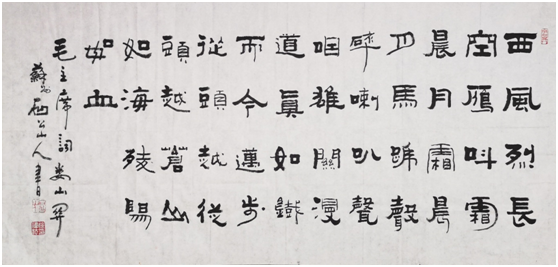 西風烈長
空雁叫霜
晨月霜晨
月馬蹄聲
碎喇叭聲
咽雄關漫
道眞如鐵
而今邁步
從頭越從
頭越蒼山
如海殘陽
如血
毛主席詞娄山关
山人書